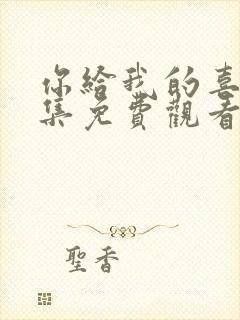 你給我的喜
集免費觀看
聖香